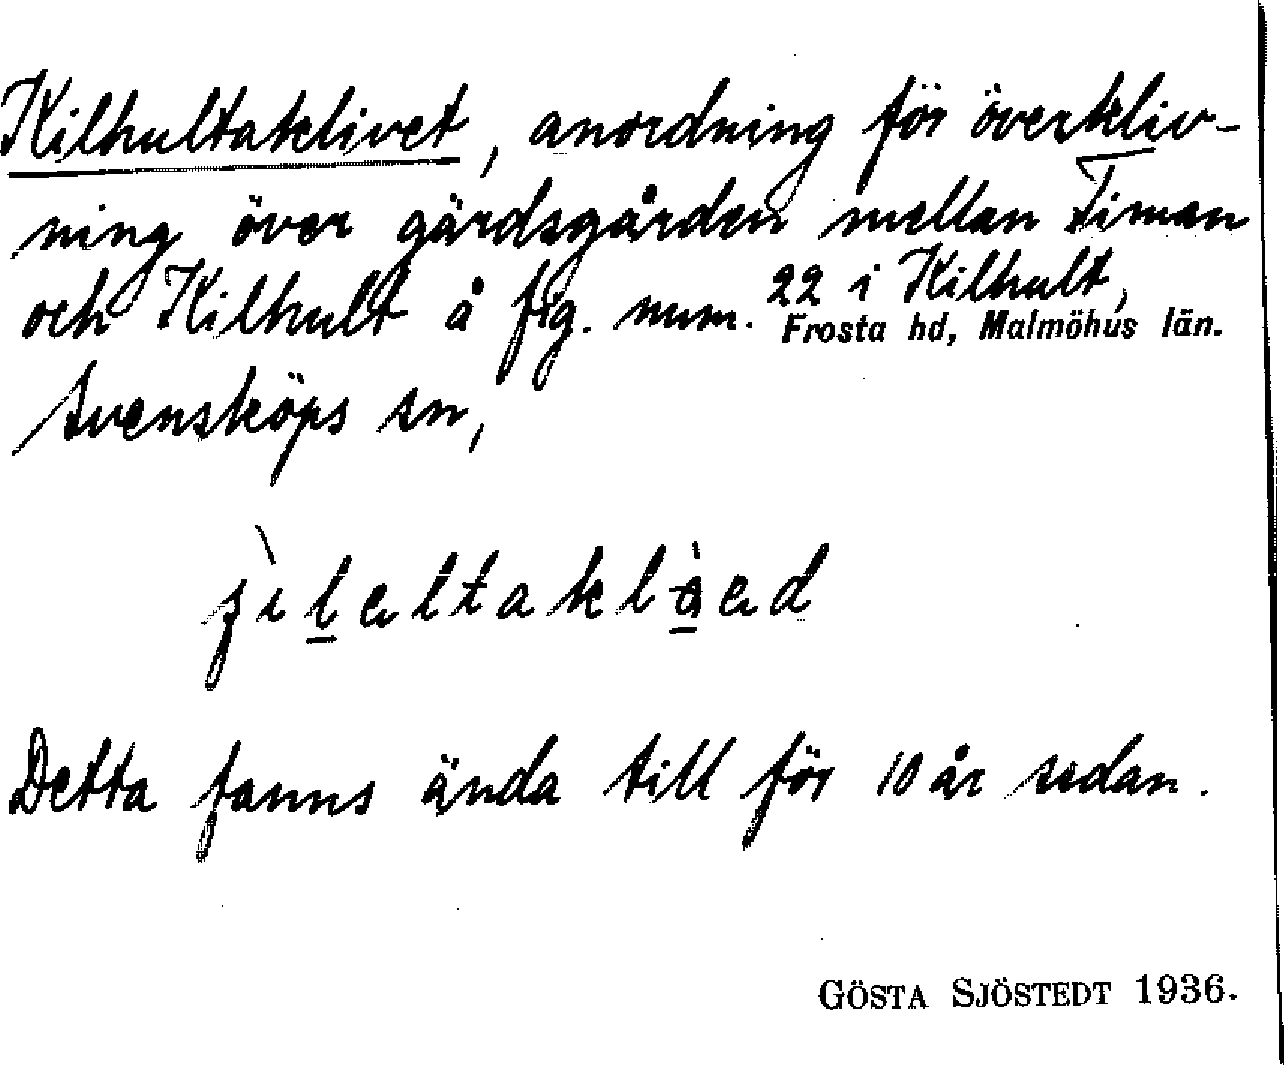 Kilhultaklivet, anordning för överkliv-
ning över gärdsgården mellan Timan
och Kilhult å fig. num. 22 i Kilhult,
Svensköps sn, Frosta hd, Malmöhus län.
Detta fanns ända till för 10 år sedan.
GÖSTA SJÖSTEDT 1936.